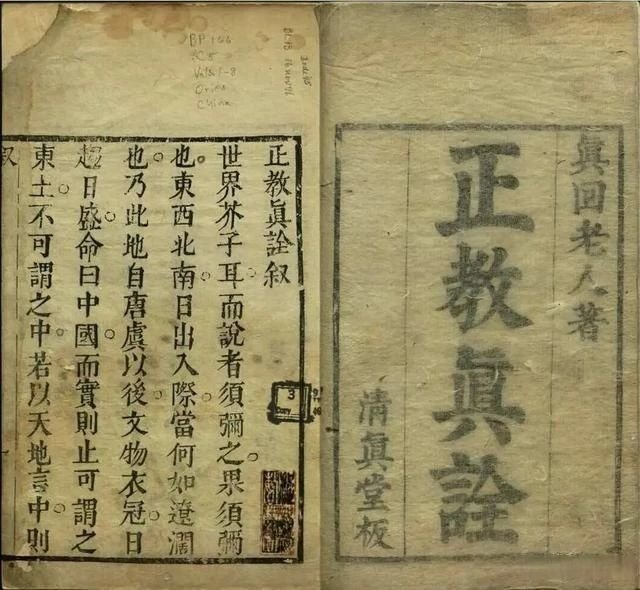 眞回老人著
正教眞詮
清眞堂板
正教眞詮叙
世界芥子耳而說者須彌之果須彌
也東西北南日出入際當何如遼濶
也乃此地自唐虞以後文物衣冠日
趨日盛命曰中國而實則止可謂之
東土不可謂之中若以天地言中則
叙
BP 166
Vols 1-8
China
3